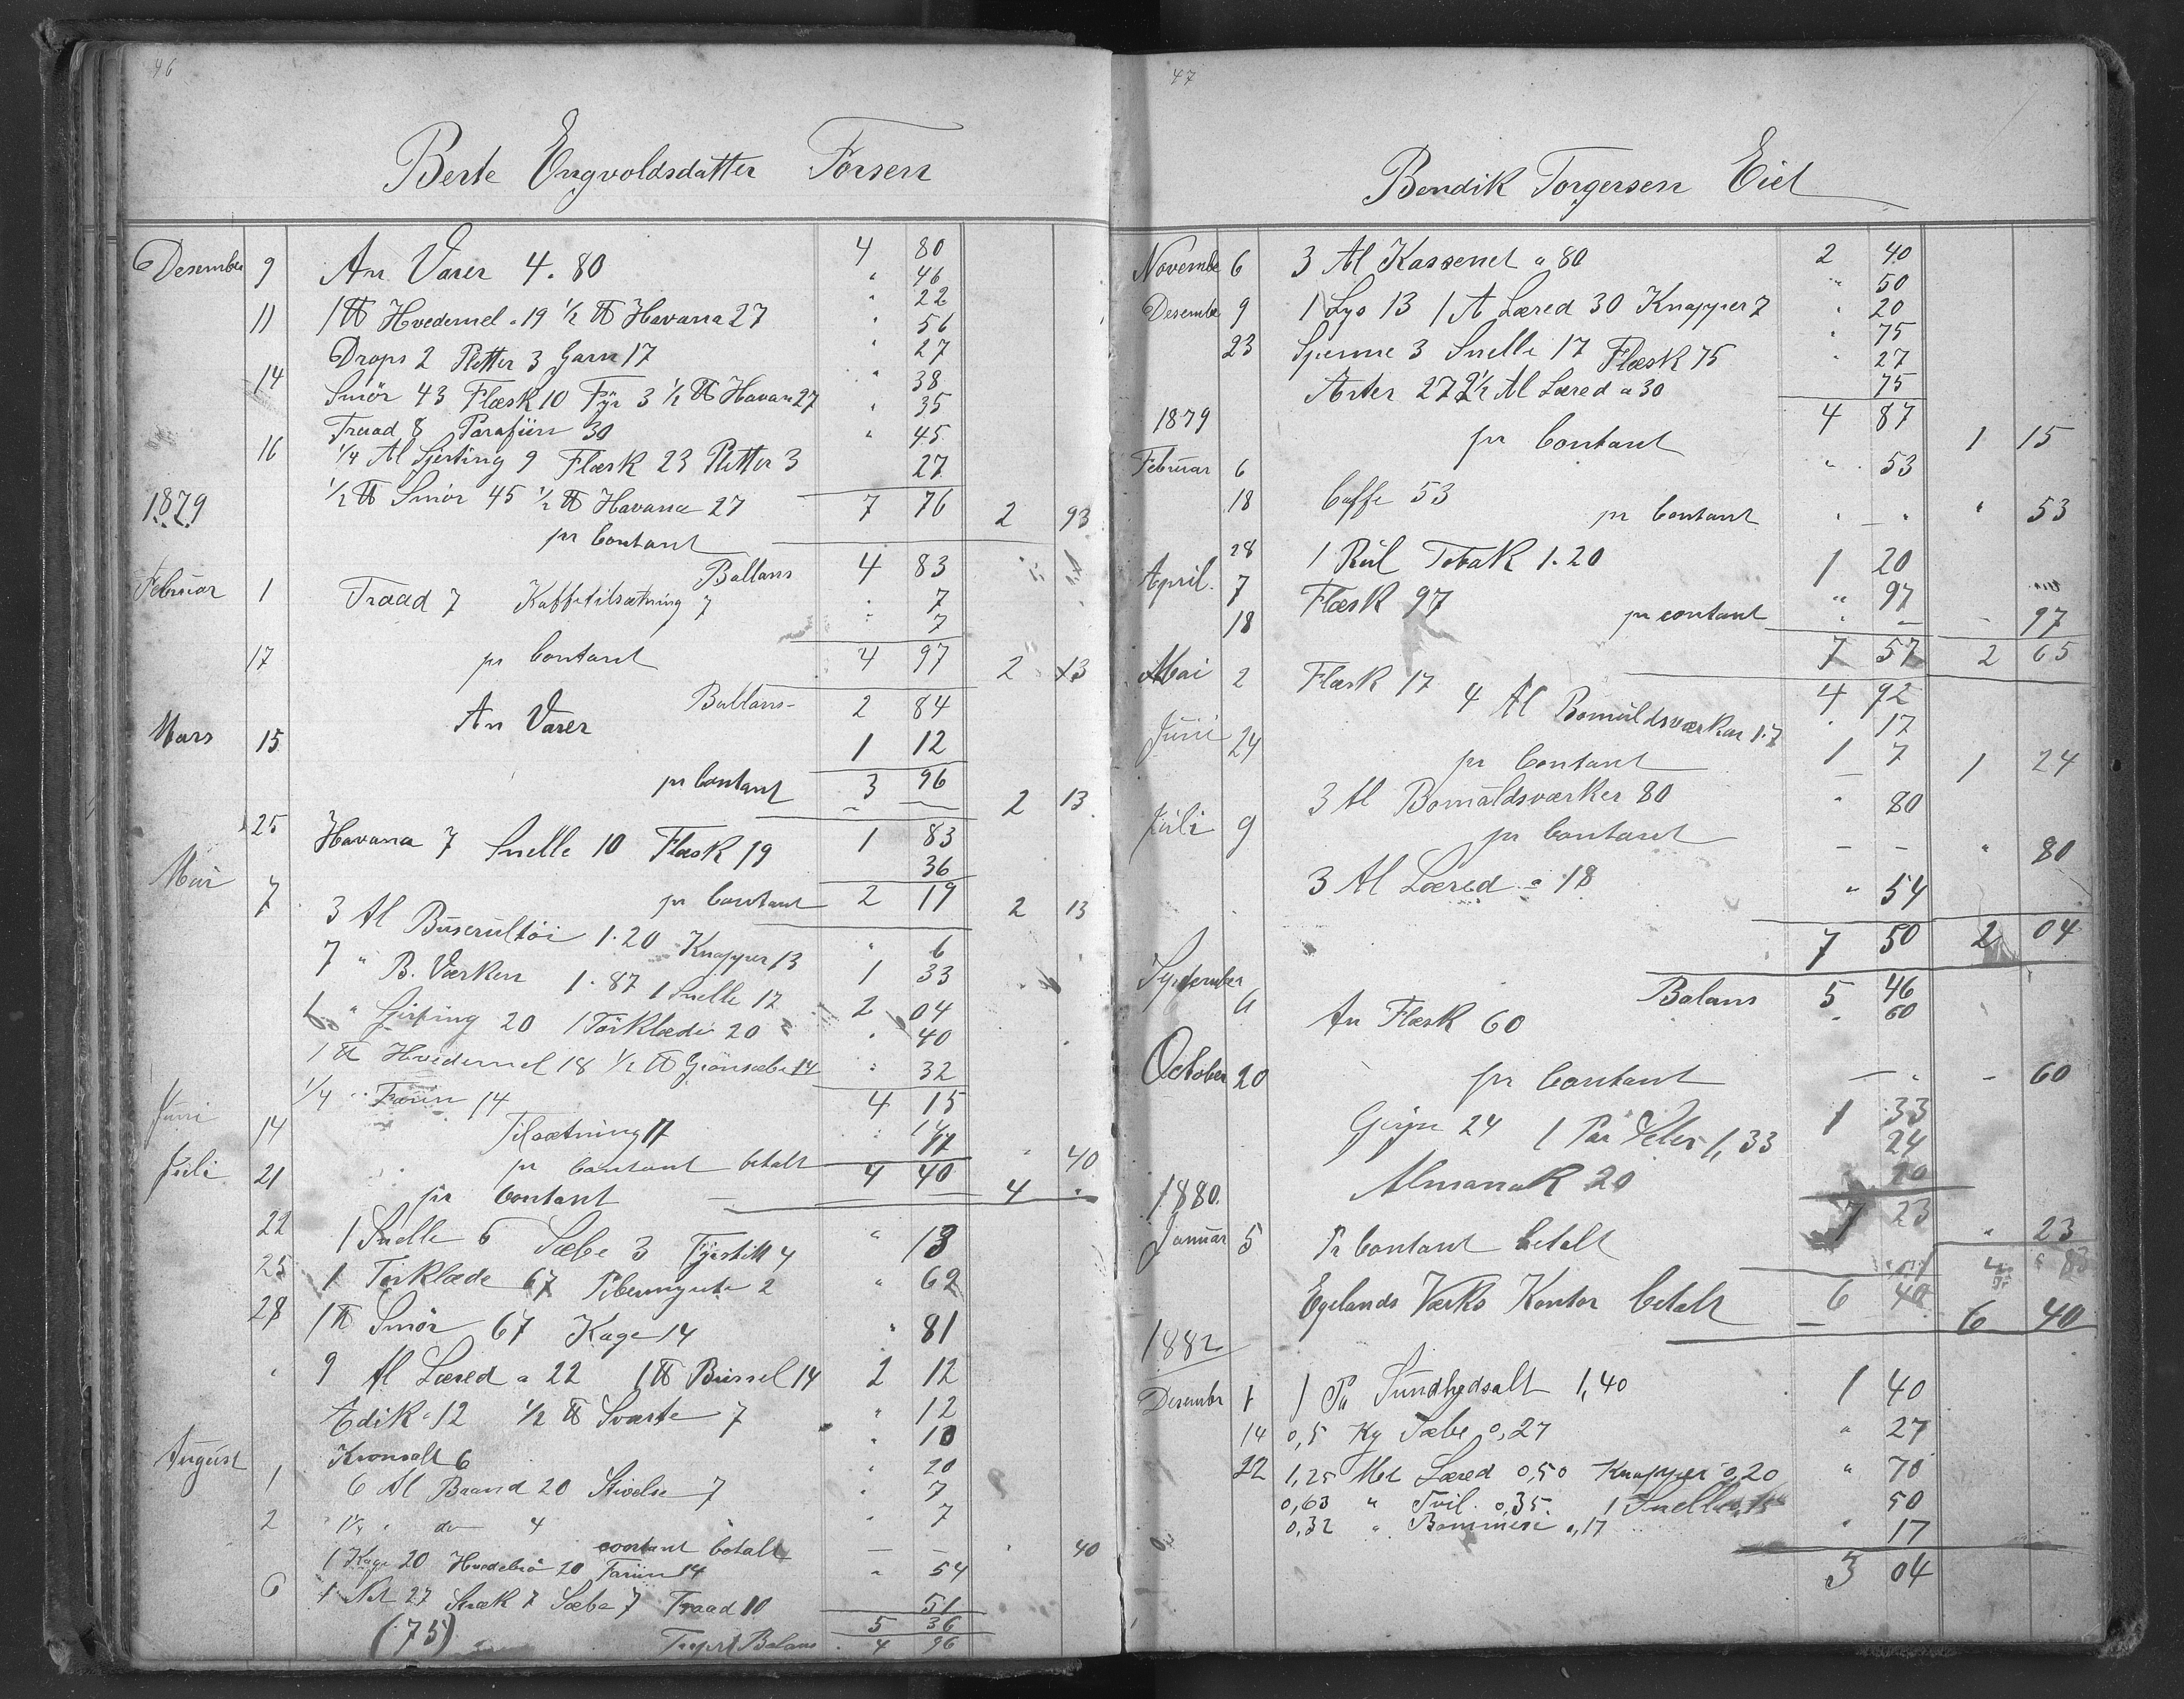 46
Berte Engvoldsdatter Forsen
Desember 9 An Varer 4.80 4 80
" 46
11 1 ℔ Hvedemel a 19 ½ ℔ Havana 27 " 22
Drops 2 Pletter 3 Garn 17 " 56
" 27
14 Smör 43 Flæsk 10 Fyr 3 ½ ℔ Havan 27 " 38
Traad 8 Parafiin 30 " 35
16 ¼ Al Sjirting 9 Flæsk 23 Pletter 3 " 45
½ ℔ Smör 45 ½ ℔ Havana 27 27
1879 7 76
pr Contant 2 93
Ballans 4 83
Februar 1 Traad 7 Kaffetilsætning 7 " 7
" 7
17 pr Contant 4 97 2 13
Ballans 2 84
Mars 15 An Varer 1 12
pr Contant 3 96 2 13
25 Havana 7 Snelle 10 Flæsk 19 1 83
36
Mai 7 pr Contant 2 19 2 13
3 Al Buserultöi 1.20 Knapper 13 " 6
7 " B. Værken 1.87 1 Snelle 17 1 33
6 " Girting 20 1 Törklæde 20 2 04
" 40
1 ℔ Hvedemel 18 ½ ℔ Grönsæbe 14 " 32
¼ " Farin 14 4 15
Juni 14 Tilsætning 17 " 14
17
pr Contant betalt 4 40 " 40
Juli 21 pr Contant 4 "
22 1 Snelle 6 Sæbe 3 Fyrstik 4 " 13
25 1 Törklæde 67 Pibemynte 2 " 69
28 1 ℔ Smör 67 Kage 14 " 81
" 9 Al Læred a 22 1 ℔ Bussel 14 2 12
Edik a 12 ½ ℔ Sværte 7 " 12
Kronsalt 6 " 10
August 1 6 Al Baand 20 Stivelse 7 " 20
" 7
2 " 1¼ " do 4 " 7
contant betalt " 40
1 Kage 20 Hvedebrö 20 Farin 14 " 54
6 1 Net 27 Skræk 7 Sæbe 7 Traad 10 51
(75) 5 36
Balans 4 96
47
Bendik Torgersen Eiet
November 6 3 Al Kassenet a 80 2 40
" 50
Desember 9 1 Lys 13 1 Al Læred 30 Knapper 7 " 20
23 Spenne 3 Snelle 17 Flæsk 75 " 75
" 27
Erter 27 2½ Al Læred a 30 75
1879 4 87
pr Contant 1 15
Februar 6 Caffe 53 " 53
18 pr Contant " — " " 53
28 1 Rul Tobak 1.20 1 20
April 7 Flæsk 97 " 97
18 pr contant 97
7 57 2 65
Mai 2 Flæsk 17 4 Al Bomuldsværken 1.7 4 92
" 17
1 7
Juni 24 pr Contant 1 24
3 Al Bomuldsværken 80 " 80
Juli 9 pr Contant — — " 80
3 Al Læred a 18 " 54
7 50 2 04
September Balans 5 46
6 An Flæsk 60 " 60
October 20 pr Contant — " 60
Girpu 24 1 Par Seler 1,33 1 33
24
Almanak 20 20
1880. 7 23
Januar 5 Pr Contant betalt " 23
" 83
Egelands Værks Kontor betalt 6 40 6 40
1882
Desember 1 1 Pu Sundhedsalt 1,40 1 40
14 0,5 Kg Sæbe 0,27 " 27
22 1,25 Met Læred 0,50 Knapper 0,20 " 70
0,63 " Tvil. 0,35. 1 Snelle 0,15 50
0,32 " Bommesi 0,17 " 17
3 04